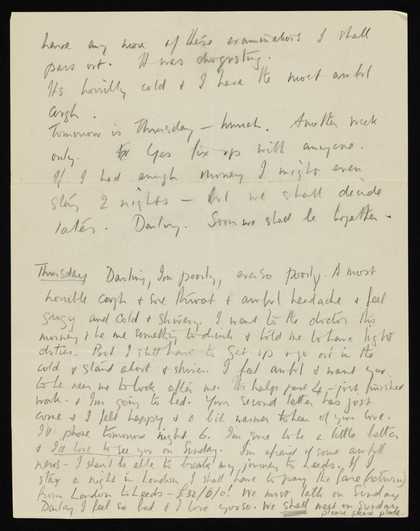 have any more of these examinations I shall
pass out. It was disgusting.
Its horribly cold & I have the most awful
cough.
Tomorrow is Thursday – hurrah. Another week
only. Yes fix ups with anyone.
If I had enough money I might even
stay 2 nights – but we shall decide
later. Darling. Soon we shall be together –
Thursday Darling, I'm poorly, ever so poorly. A most
horrible cough & sore throat & awful headache & feel
and cold & shivery. I went to the doctor this
morning & he me something to drink & told me to have light
duties. But I still have to get up & go out in the
cold & stand about & shiver. I feel awful & want you
to be near me to look after me. It's half past 4 – just finished
work – & I'm going to bed. Your second letter has just
come & I felt happy & a bit warmer to hear of your love.
I'll phone tomorrow night, 6. I'm sure to be a little better
& I'd love to see you on Sunday. I'm afraid of some awful
news – I shan't be able to break my journey to Leeds. If I
stay a night in London I shall have to pay the fare
from London to Leeds – We must talk on Sunday
Darling I feel so bad & I love you so. We shall meet on Sunday
please share